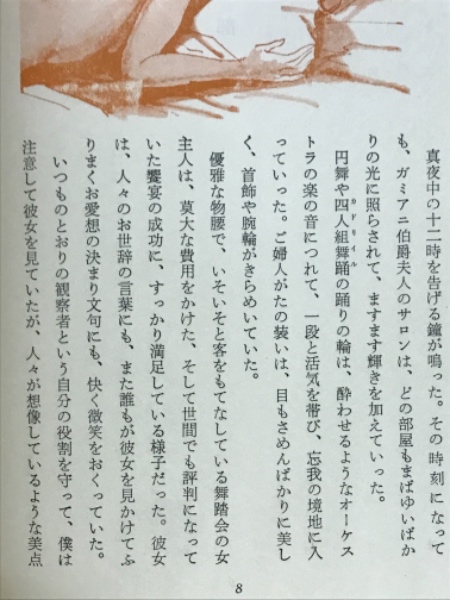 真夜中の十二時を告げる鐘が鳴った。その時刻になって
も、ガミアニ伯爵夫人のサロンは、どの部屋もまばゆいばか
りの光に照らされて、ますます輝きを加えていった。
円舞や四人組舞踊カドリイルの踊りの輪は、酔わせるようなオーケス
トラの楽の音につれて、一段と活気を帯び、忘我の境地に入
っていった。ご婦人がたの装いは、目もさめんばかりに美し
く、首飾や腕輪がきらめいていた。
優雅な物腰で、いそいそと客をもてなしている舞踏会の女
主人は、莫大な費用をかけた、そして世間でも評判になって
いた饗宴の成功に、すっかり満足している様子だった。彼女
は、人々のお世辞の言葉にも、また誰もが彼女を見かけてふ
りまくお愛想の決まり文句にも、快く微笑をおくっていた。
いつものとおりの観察者という自分の役割を守って、僕は
注意して彼女を見ていたが、人々が想像しているような美点
8